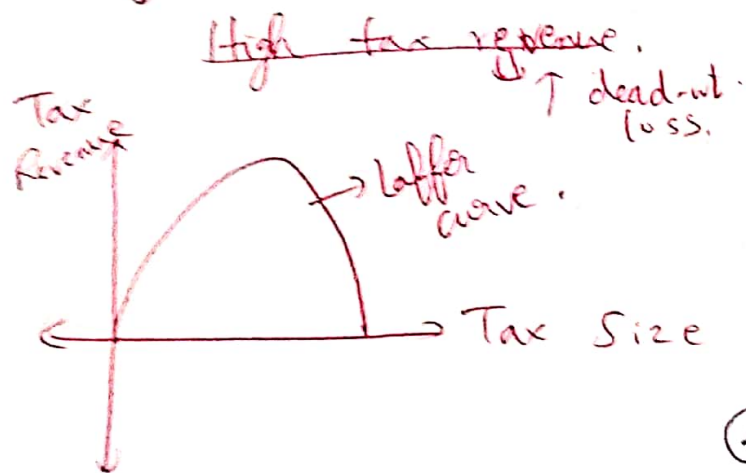 High tax revenue.
↑ dead-wt.
loss.
Tax
Revenue
Laffer
curve.
Tax Size